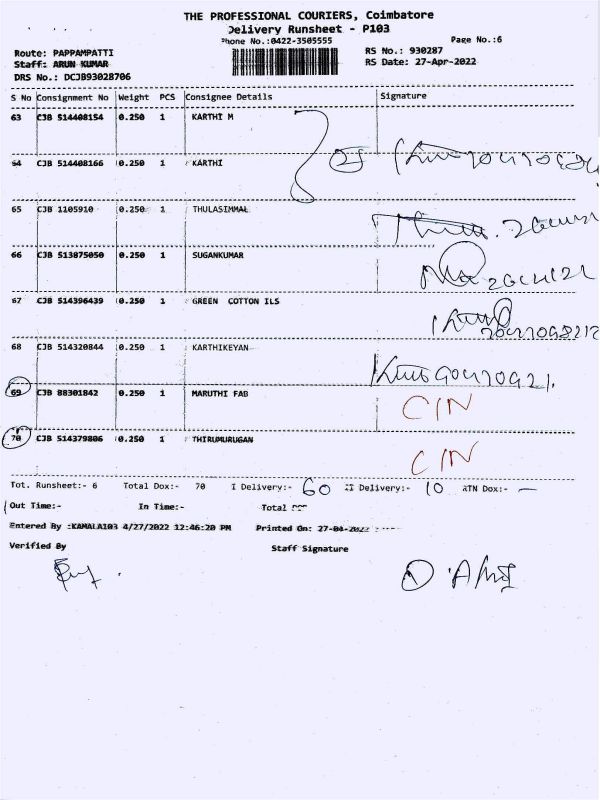 THE PROFESSIONAL COURIERS, Coimbatore
Delivery Runsheet - P103
Phone No.:0422-3505555 Page No.:6
Route: PAPPAMPATTI RS No.: 930287
Staff: ARUN KUMAR RS Date: 27-Apr-2022
DRS No.: DCJB93028706
S No Consignment No Weight PCS Consignee Details Signature
63 CJB 514408154 0.250 1 KARTHI M
64 CJB 514408166 0.250 1 KARTHI
65 CJB 1105910 0.250 1 THULASIMMAL
66 CJB 513875050 0.250 1 SUGANKUMAR
67 CJB 514396439 0.250 1 GREEN COTTON ILS
68 CJB 514320844 0.250 1 KARTHIKEYAN
69 CJB 88301842 0.250 1 MARUTHI FAB CIN
70 CJB 514379806 0.250 1 THIRUMURUGAN CIN
Tot. Runsheet:- 6 Total Dox:- 70 I Delivery:- 60 II Delivery:- 10 RTN Dox:- —
Out Time:- In Time:- Total
Entered By :KAMALA103 4/27/2022 12:46:20 PM Printed On: 27-04-2022
Verified By Staff Signature